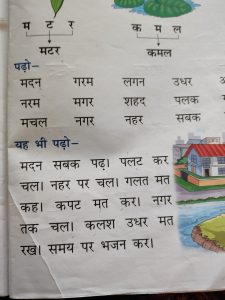 म ट र क म ल
मटर कमल
पढ़ो–
मदन गरम लगन उधर
नरम मगर शहद पलक
मचल नगर नहर सबक
यह भी पढ़ो–
मदन सबक पढ़। पलट कर
चल। नहर पर चल। गलत मत
कह। कपट मत कर। नगर
तक चल। कलश उधर मत
रख। समय पर भजन कर।